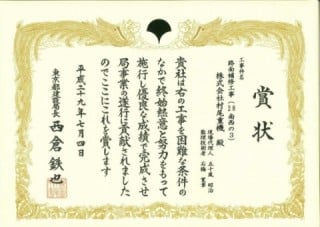 賞状
工事件名
路面補修工事(
南西の3)
株式会社村尾重機 殿
現場代理人 五十嵐 昭治
監理技術者 石橋 寛
貴社は右の工事を困難な条件の
なかで終始熱意と努力をもって
施行し優良な成績で完成させ
局事業の遂行に貢献されました
のでここにこれを賞します
平成二十九年七月四日
東京都建設局長 西倉鉄也